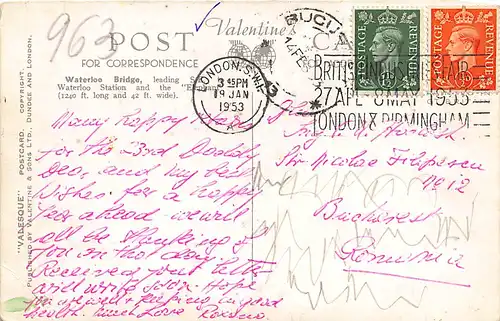 963
POST CARD
FOR CORRESPONDENCE
Valentine's
Waterloo Bridge, leading
Waterloo Station and the "Elephant
(1240 ft. long and 42 ft. wide).
LONDON. S.W.1.
3 45PM
19 JAN
1953
A
BUCUR
14 FEB
53
POSTAGE REVENUE
POSTAGE REVENUE
BRITISH INDUSTRIES FAIR
27 APL - 8 MAY 1953
LONDON & BIRMINGHAM
COPYRIGHT.
"VALESQUE" POSTCARD.
PUBLISHED BY VALENTINE & SONS LTD., DUNDEE AND LONDON.
Many happy
for the 23rd Daddy
Dear, and my best
wishes for a happy
year ahead we will
all be thinking of
you on that day.
Received your letter
will write soon. Hope
you are well & keeping in good
health. Much Love
Str Nicolae Filipescu
No 12
Bucharest
Romania